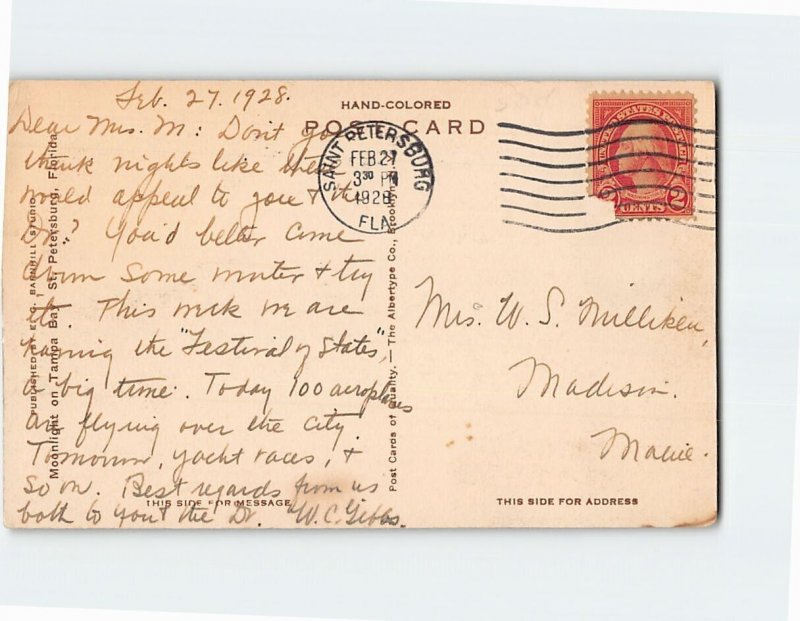 Feb. 27. 1928.
Dear Mrs. M: Don't you
think nights like this
would appeal to you & the
Dr? You'd better come
down some winter & try
it. This week we are
having the "Festival of States",
a big time. Today 100 aeroplanes
are flying over the city.
Tomorrow, yacht races, &
so on. Best regards from us
both to you & the Dr. W. C. Gibbs.
HAND-COLORED
POST CARD
SAINT PETERSBURG
FEB 27
3 30 PM
1928
FLA.
UNITED STATES POSTAGE
2 CENTS 2
Mrs. W. S. Milliken,
Madison.
Maine.
PUBLISHED BY E. G. BARNHILL STUDIO
Moonlight on Tampa Bay, St. Petersburg, Florida.
Post Cards of Quality. — The Albertype Co., Brooklyn,
THIS SIDE FOR MESSAGE
THIS SIDE FOR ADDRESS